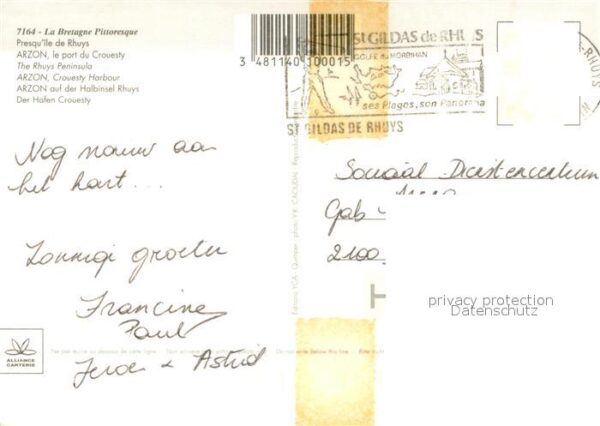 7164 - La Bretagne Pittoresque
Presqu'île de Rhuys
ARZON, le port du Crouesty
The Rhuys Peninsula
ARZON, Crouesty Harbour
ARZON auf der Halbinsel Rhuys
Der Hafen Crouesty
3 481140 300015
ST GILDAS DE RHUYS
GOLFE du MORBIHAN
ses Plages, son Panorama
ST GILDAS DE RHUYS
RHUYS
Nog nauw aan
het hart...
Zonnige groeten
Francine
Paul
Jeroen & Astrid
Sociaal Dienstencentrum
Gab
2100
privacy protection
Datenschutz
ALLIANCE
CARTERIE